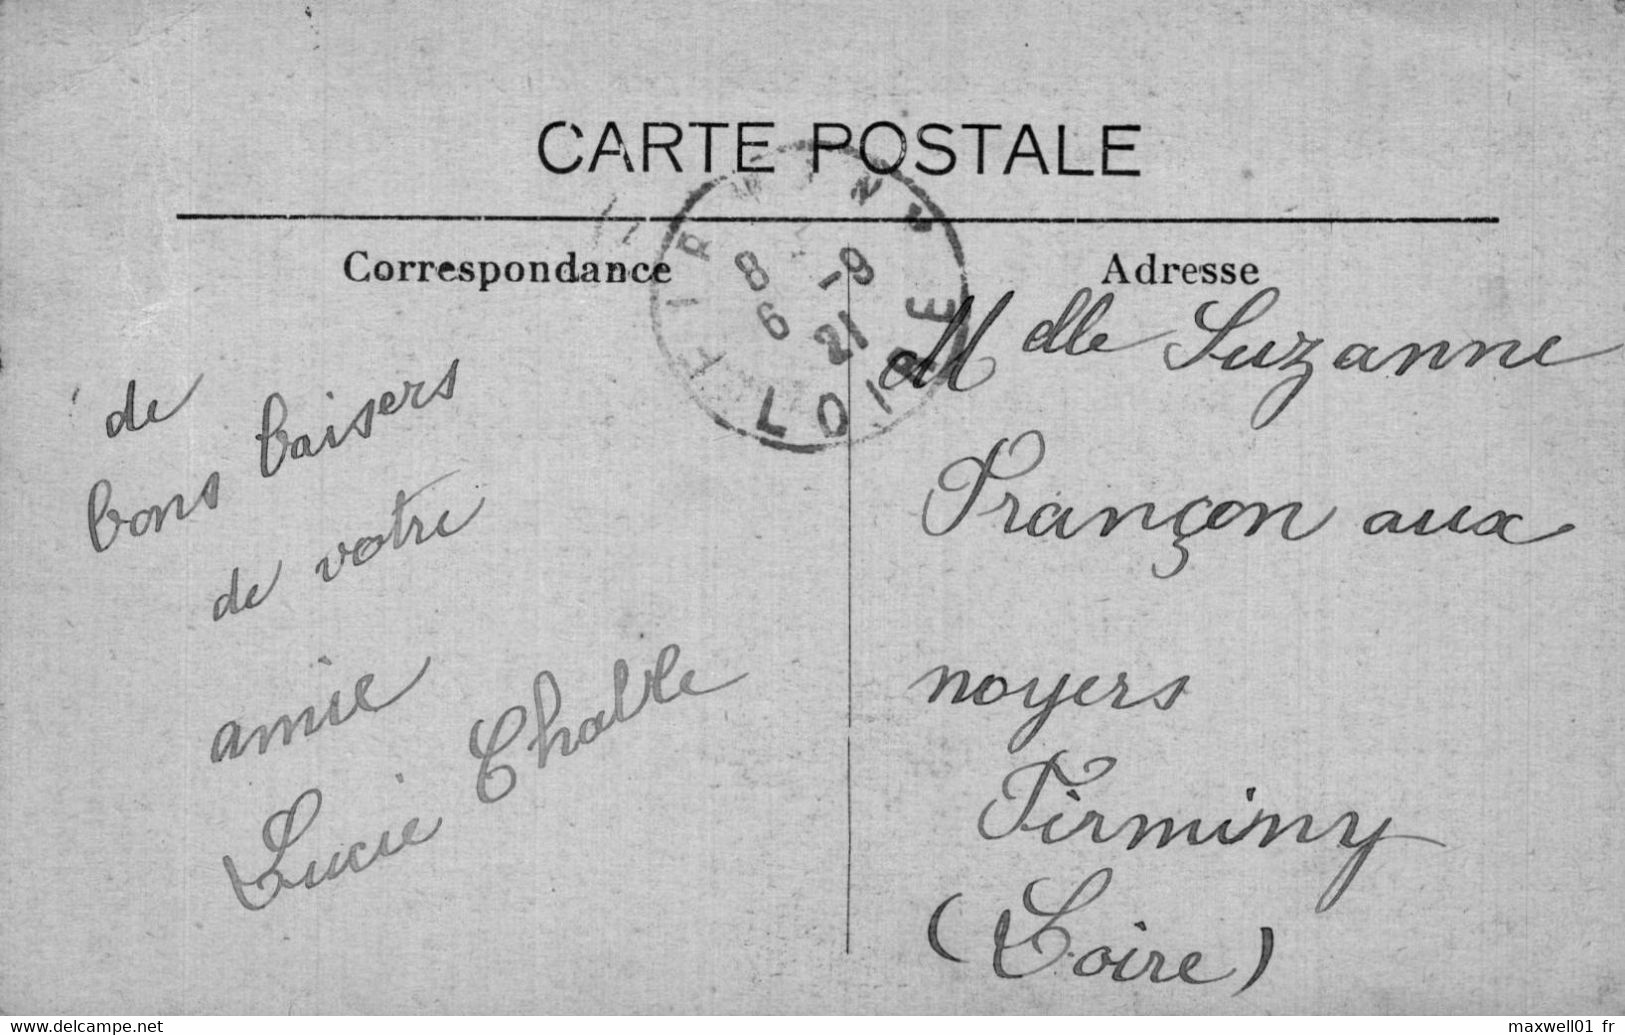 CARTE POSTALE
Correspondance
de
bons baisers
de votre
amie
Lucie Chable
Adresse
Mdlle Suzanne
Françon aux
noyers
Firminy
(Loire)
FIRMINY
8 -9
6 21
LOIRE
www.delcampe.net
maxwell01 fr